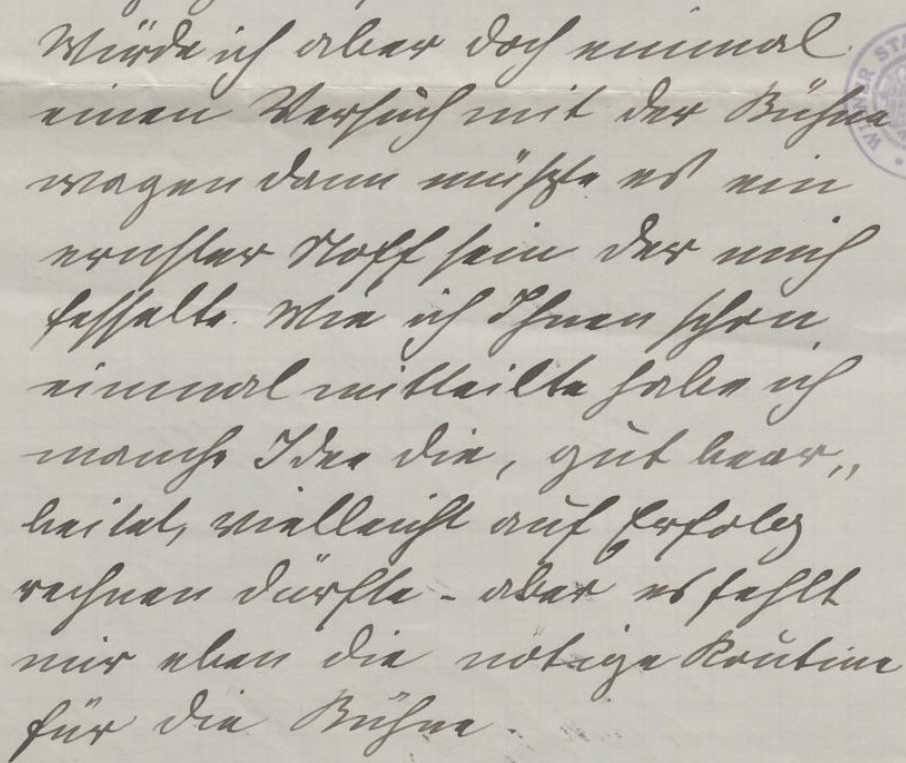 Würde ich aber doch einmal
einen Versuch mit der Bühne
wagen dann müßte es ein
ernster Stoff sein der mich
fesselte. Wie ich Ihnen schon
einmal mitteilte habe ich
manche Idee die, gut bear„
beitet, vielleicht auf Erfolg
rechnen dürfte - aber es fehlt
mir eben die nötige Routine
für die Bühne.